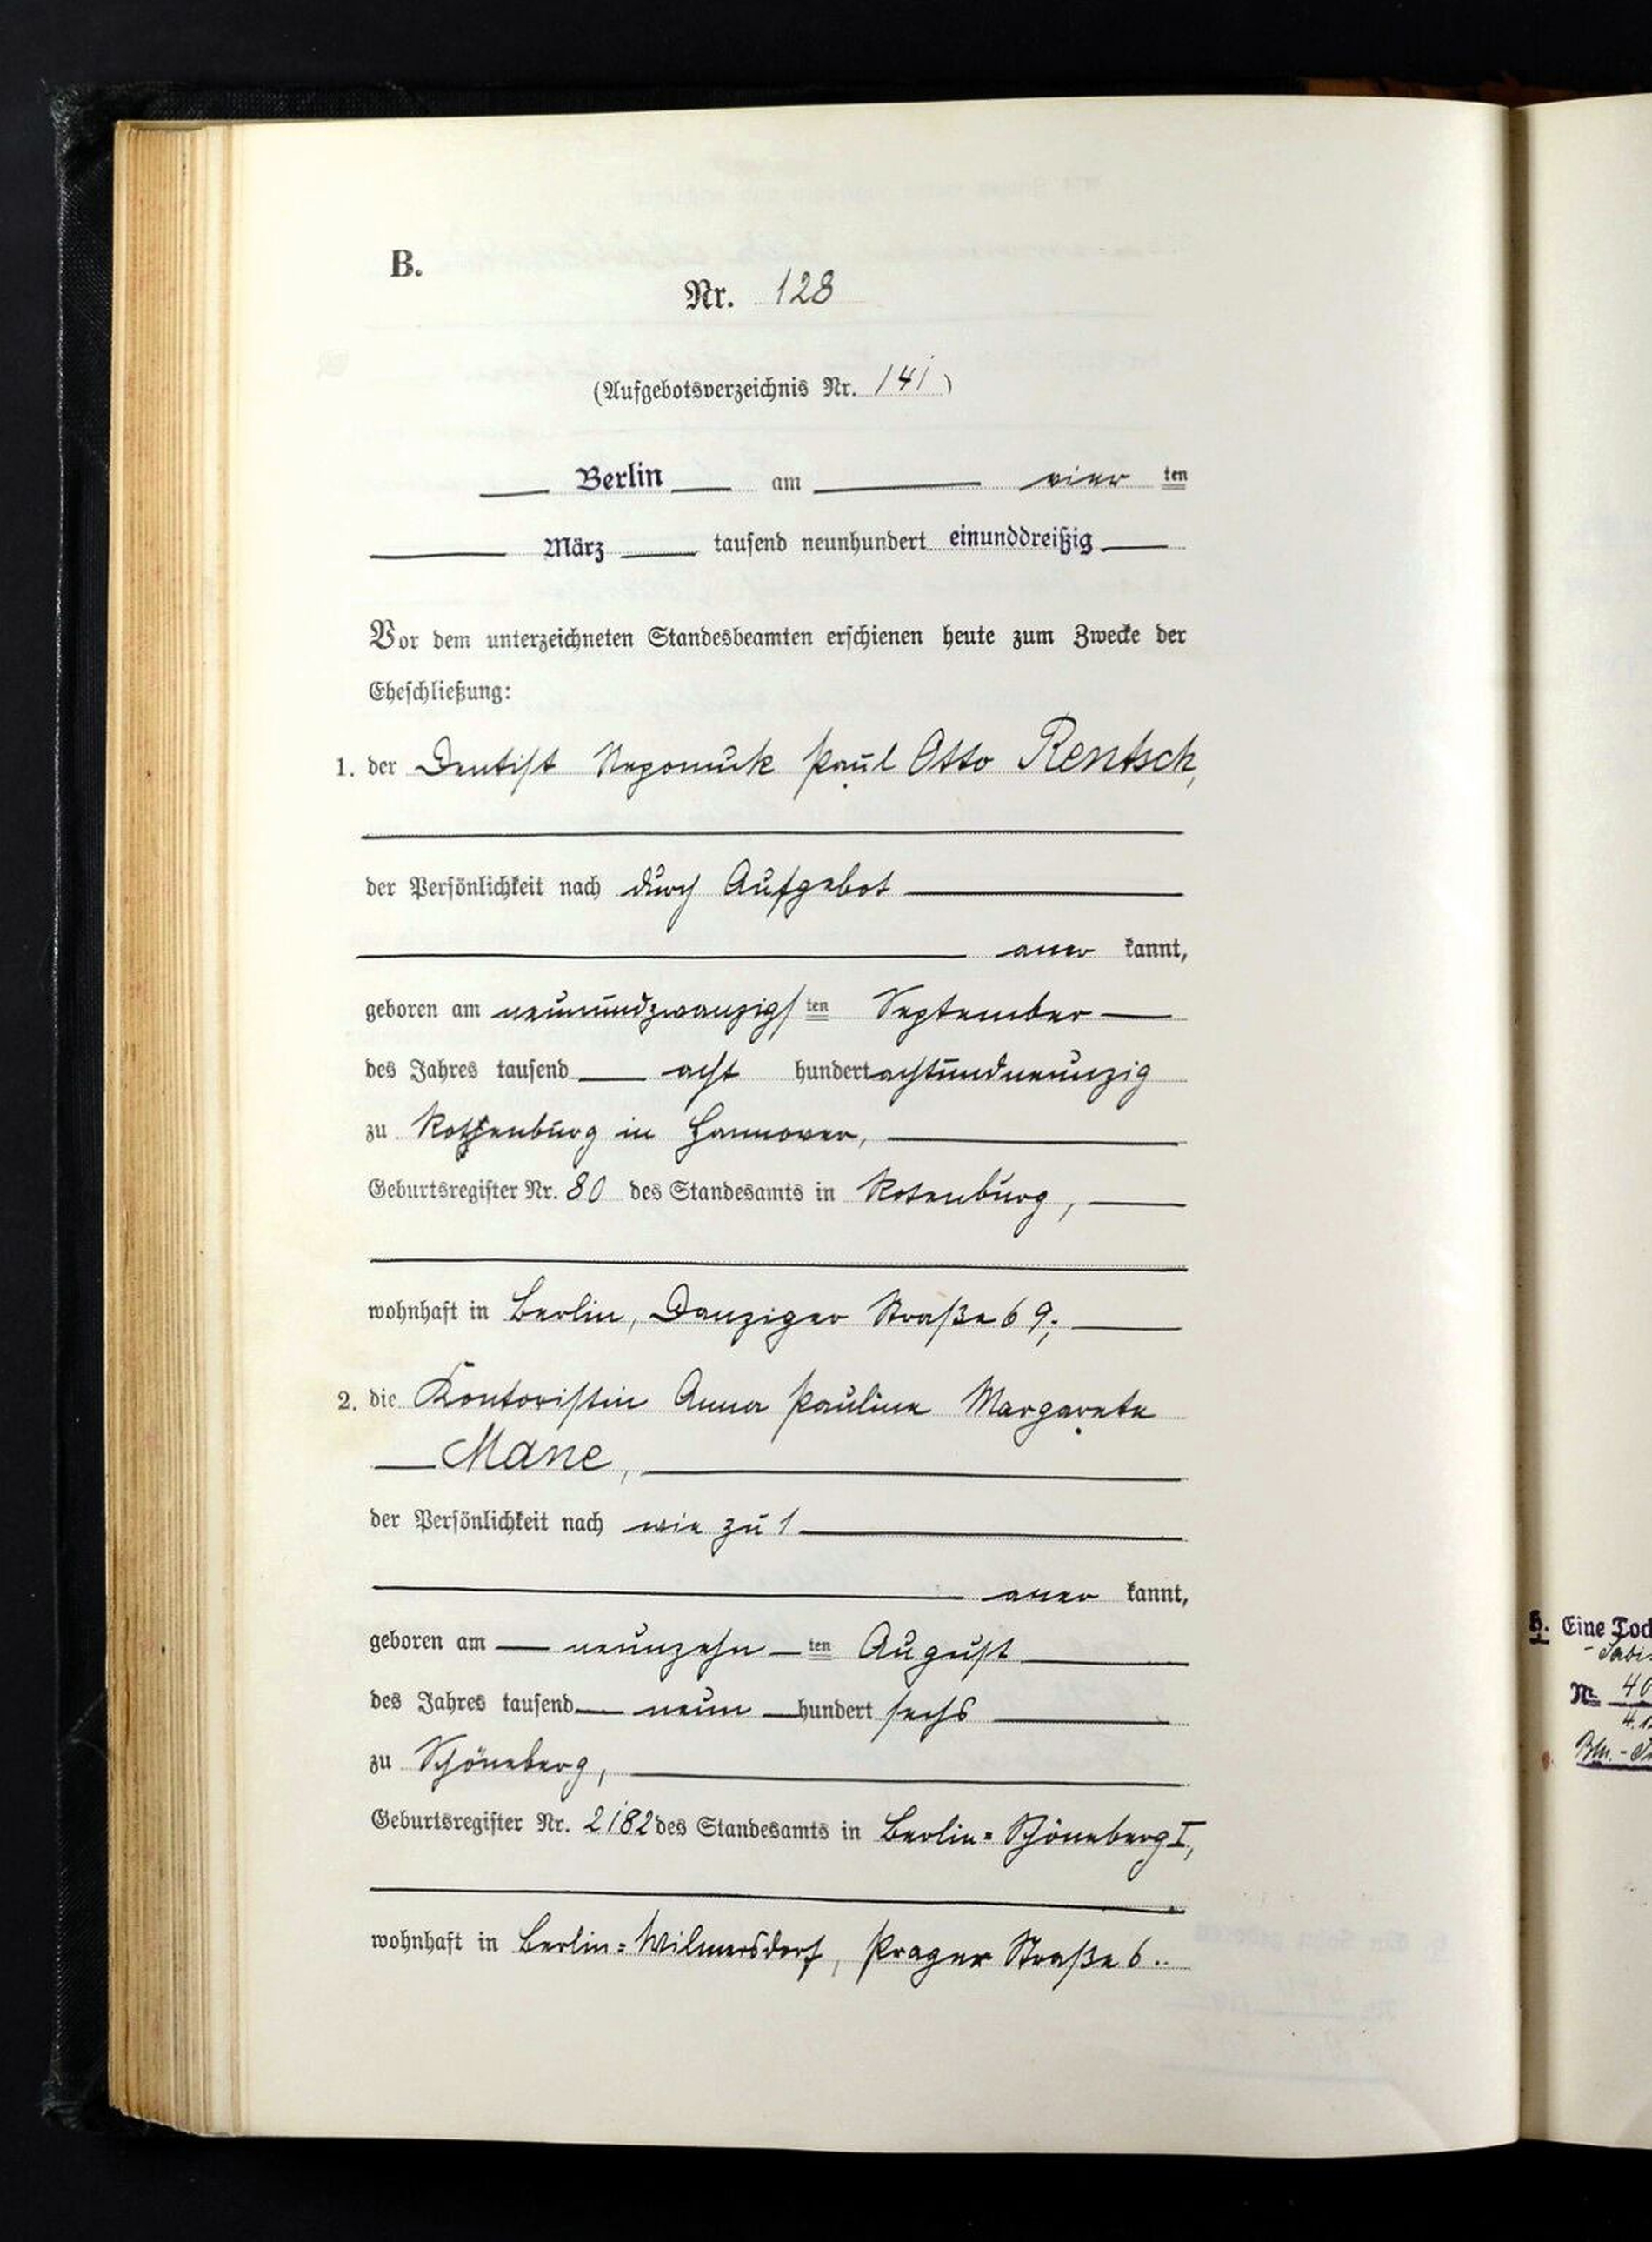 B.
Nr. 128
(Aufgebotsverzeichnis Nr. 141)
Berlin am vier ten
März tausend neunhundert einunddreißig
Vor dem unterzeichneten Standesbeamten erschienen heute zum Zwecke der
Eheschließung:
1. der Dentist Nepomuk Paul Otto Rentsch,
der Persönlichkeit nach durch Aufgebot
aner kannt,
geboren am neunundzwanzigs ten September
des Jahres tausend acht hundert achtundneunzig
zu Rothenburg in Hannover,
Geburtsregister Nr. 80 des Standesamts in Rotenburg,
wohnhaft in Berlin, Danziger Straße 69;
2. die Kontoristin Anna Pauline Margarete
Mane,
der Persönlichkeit nach wie zu 1
aner kannt,
geboren am neunzehn ten August
des Jahres tausend neun hundert sechs
zu Schöneberg,
Geburtsregister Nr. 2182 des Standesamts in Berlin=Schöneberg I,
wohnhaft in Berlin=Wilmersdorf, Prager Straße 6..
B. Eine Toc
Nr. 40
4.
Bln.-